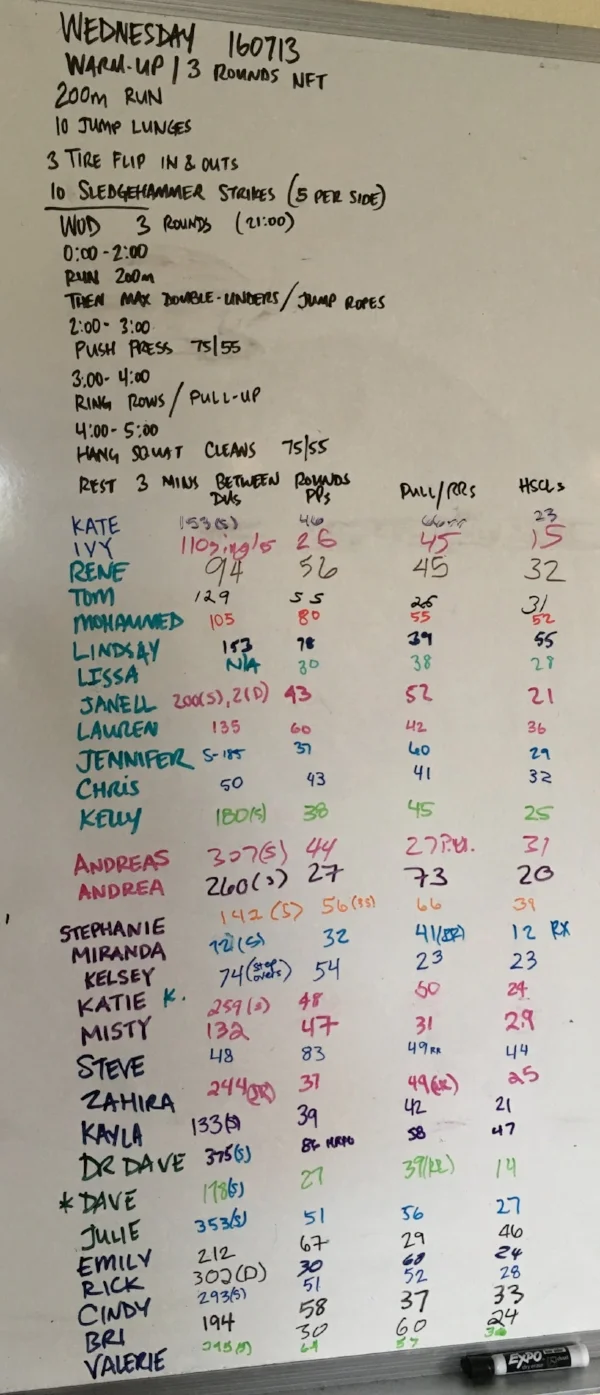 WEDNESDAY 160713
WARM-UP / 3 ROUNDS NFT
200m RUN
10 JUMP LUNGES
3 TIRE FLIP IN & OUTS
10 SLEDGEHAMMER STRIKES (5 PER SIDE)
WOD 3 ROUNDS (21:00)
0:00-2:00
RUN 200m
THEN MAX DOUBLE-UNDERS/JUMP ROPES
2:00-3:00
PUSH PRESS 75/55
3:00-4:00
RING ROWS / PULL-UP
4:00-5:00
HANG SQUAT CLEANS 75/55
REST 3 MINS BETWEEN ROUNDS
DUs PPs PULL/RRs HSCLs
KATE 153(S) 46 23
IVY 110 singles 26 45 15
RENE 94 56 45 32
TOM 129 55 31
MOHAMMED 105 80 55 52
LINDSAY 153 78 39 55
LISSA N/A 30 38 28
JANELL 200(S), 2(D) 43 52 21
LAUREN 135 60 42 36
JENNIFER S-185 37 40 29
CHRIS 50 43 41 32
KELLY 180(S) 38 45 25
ANDREAS 307(S) 44 27 P.U. 31
ANDREA 260(S) 27 73 20
STEPHANIE 142 (S) 56(35) 66 39
MIRANDA 121(S) 32 41(RR) 12 RX
KELSEY 74(step overs) 54 23 23
KATIE K. 259(S) 48 50 24
MISTY 132 47 31 29
STEVE 48 83 49 RX 44
ZAHIRA 244(JR) 37 49(RR) 25
KAYLA 133(S) 39 42 21
DR DAVE 375(S) 58 47
* DAVE 178(S) 27 39(RR) 14
JULIE 353(S) 51 56 27
EMILY 212 67 29 46
RICK 302(D) 30 68 24
CINDY 293(S) 51 52 28
BRI 194 58 37 33
VALERIE 30 60 24
64 57
EXPO